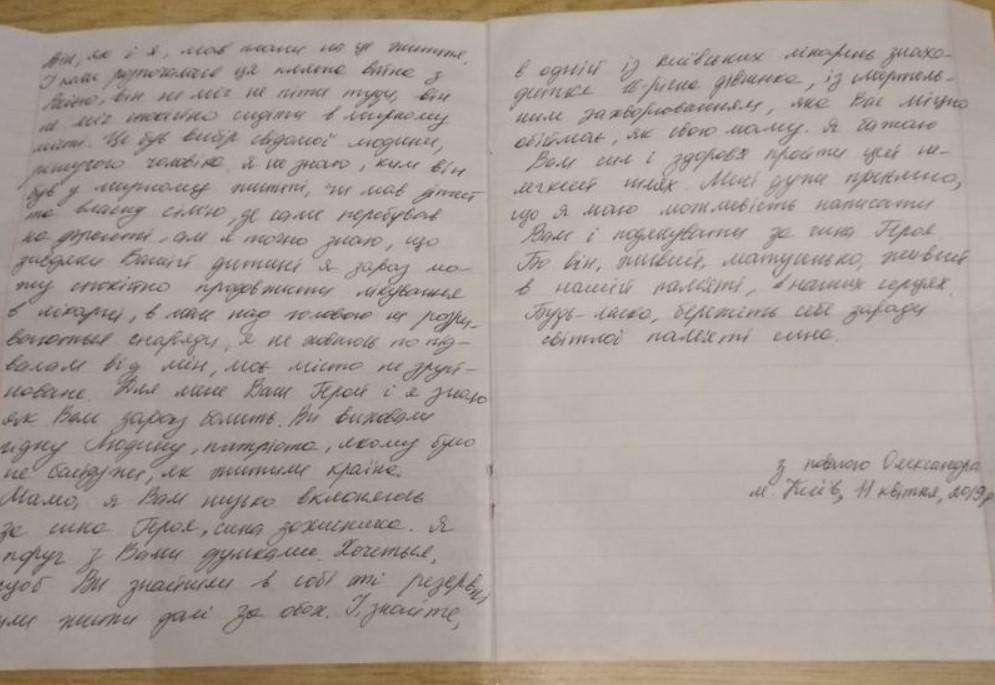 Він, як і я, мав плани на це життя.
І коли розпочалася ця клята війна з
Росією, він не міг не піти туди, він
не міг спокійно сидіти в мирному
місті. Це був вибір свідомої людини,
рішучого чоловіка. Я не знаю, ким він
був у мирному житті, чи мав дітей
та власну сім'ю, де саме перебував
на фронті, але я точно знаю, що
завдяки Вашій дитині я зараз мо-
жу спокійно продовжити лікування
в лікарні, в мене над головою не розри-
ваються снаряди, я не ховаюсь по під-
валам від мін, моє місто не зруй-
новане. Для мене Ваш Герой і я знаю
як Вам зараз болить. Ви виховали
гідну Людину, патріота, якому було
не байдуже, як житиме країна.
Мамо, я Вам низько вклоняюсь
за сина Героя, сина захисника. Я
поруч з Вами думками. Хочеться,
щоб Ви знайшли в собі ті резервні
сили жити далі за обох. І, знайте,
в одній із київських лікарень знахо-
диться 16-річна дівчинка, із смертель-
ним захворюванням, яка Вас міцно
обіймає, як свою маму. Я бажаю
Вам сил і здоров'я пройти цей не-
легкий шлях. Мені дуже приємно,
що я маю можливість написати
Вам і подякувати за сина Героя
Бо він, живий, матусенько, живий
в нашій пам'яті, в наших серцях.
Будь-ласка, бережіть себе заради
світлої пам'яті сина.
з повагою Олександра
м. Київ, 11 квітня, 2019р